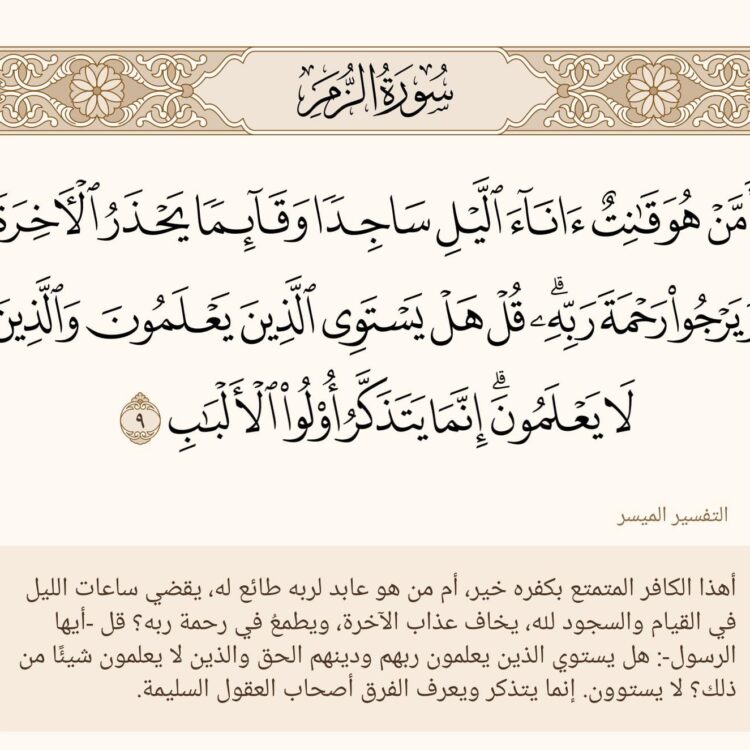 سُورَةُ الزُّمَرِ
أَمَّنْ هُوَ قَٰنِتٌ ءَانَآءَ ٱلَّيْلِ سَاجِدًا وَقَآئِمًا يَحْذَرُ ٱلْأَخِرَةَ
وَيَرْجُوا۟ رَحْمَةَ رَبِّهِۦ ۗ قُلْ هَلْ يَسْتَوِى ٱلَّذِينَ يَعْلَمُونَ وَٱلَّذِينَ
لَا يَعْلَمُونَ ۗ إِنَّمَا يَتَذَكَّرُ أُو۟لُوا۟ ٱلْأَلْبَٰبِ ٩
التفسير الميسر
أهذا الكافر المتمتع بكفره خير، أم من هو عابد لربه طائع له، يقضي ساعات الليل
في القيام والسجود لله، يخاف عذاب الآخرة، ويطمعُ في رحمة ربه؟ قل -أيها
الرسول-: هل يستوي الذين يعلمون ربهم ودينهم الحق والذين لا يعلمون شيئًا من
ذلك؟ لا يستوون. إنما يتذكر ويعرف الفرق أصحاب العقول السليمة.